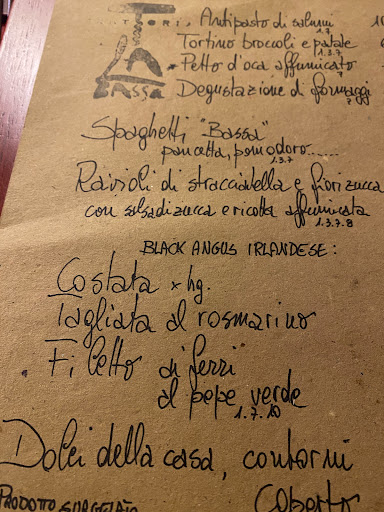 Antipasto di salumi 10
1.7
Tortino broccoli e patate
1.3.7
* Petto d'oca affumicato
7
Degustazione di formaggi
7
BASSA
Spaghetti "Bassa"
pancetta, pomodoro......
1.3.7
Ravioli di stracciatella e fiorizucca
con salsa di zucca e ricotta affumicata
1.3.7.8
BLACK ANGUS IRLANDESE:
Costata x hg.
Tagliata al rosmarino
Filetto ai ferri
al pepe verde
1.7.10
Dolci della casa, contorni
PRODOTTO SURGELATO
Coperto